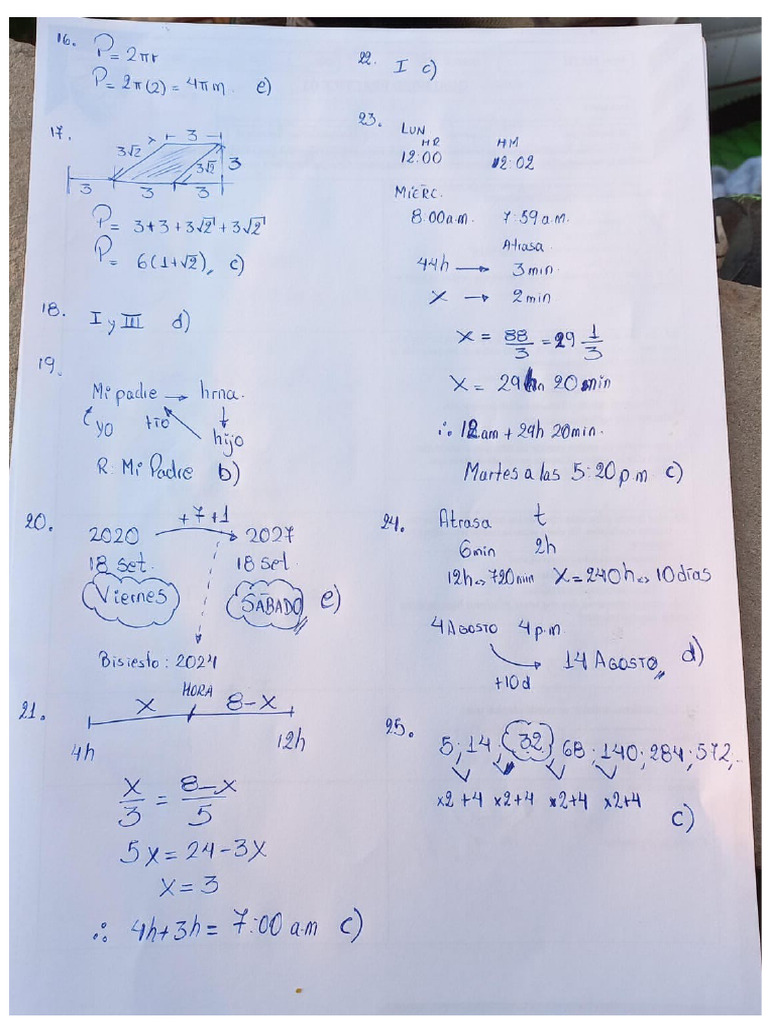 16. P = 2πr
P = 2π(2) = 4πm. e)
17.
3
3√2
3√2
3
3 3 3
P = 3+3+3√2+3√2
P = 6(1+√2), c)
18. I y III d)
19.
Mi padre → hrna.
yo tio hijo
R: Mi Padre b)
20. +7+1
2020 2027
18 set. 18 set.
Viernes SÁBADO e)
Bisiesto: 2024
21. x HORA 8-x
4h 12h
x/3 = 8-x/5
5x = 24-3x
x = 3
∴ 4h+3h = 7:00 a.m c)
22. I c)
23. LUN
HR HM
12:00 12:02
MIÉRC.
8:00a.m. 7:59a.m.
Atrasa
44h → 3min.
x → 2min
x = 88/3 = 29 1/3
x = 29h 20min
∴ 12am + 29h 20min.
Martes a las 5:20p.m c)
24. Atrasa t
6min 2h
12h<>720min x = 240h<>10días
4 AGOSTO 4 p.m
+10d 14 AGOSTO, d)
25. 5; 14; 32; 68; 140; 284; 572,..
x2+4 x2+4 x2+4 x2+4
c)